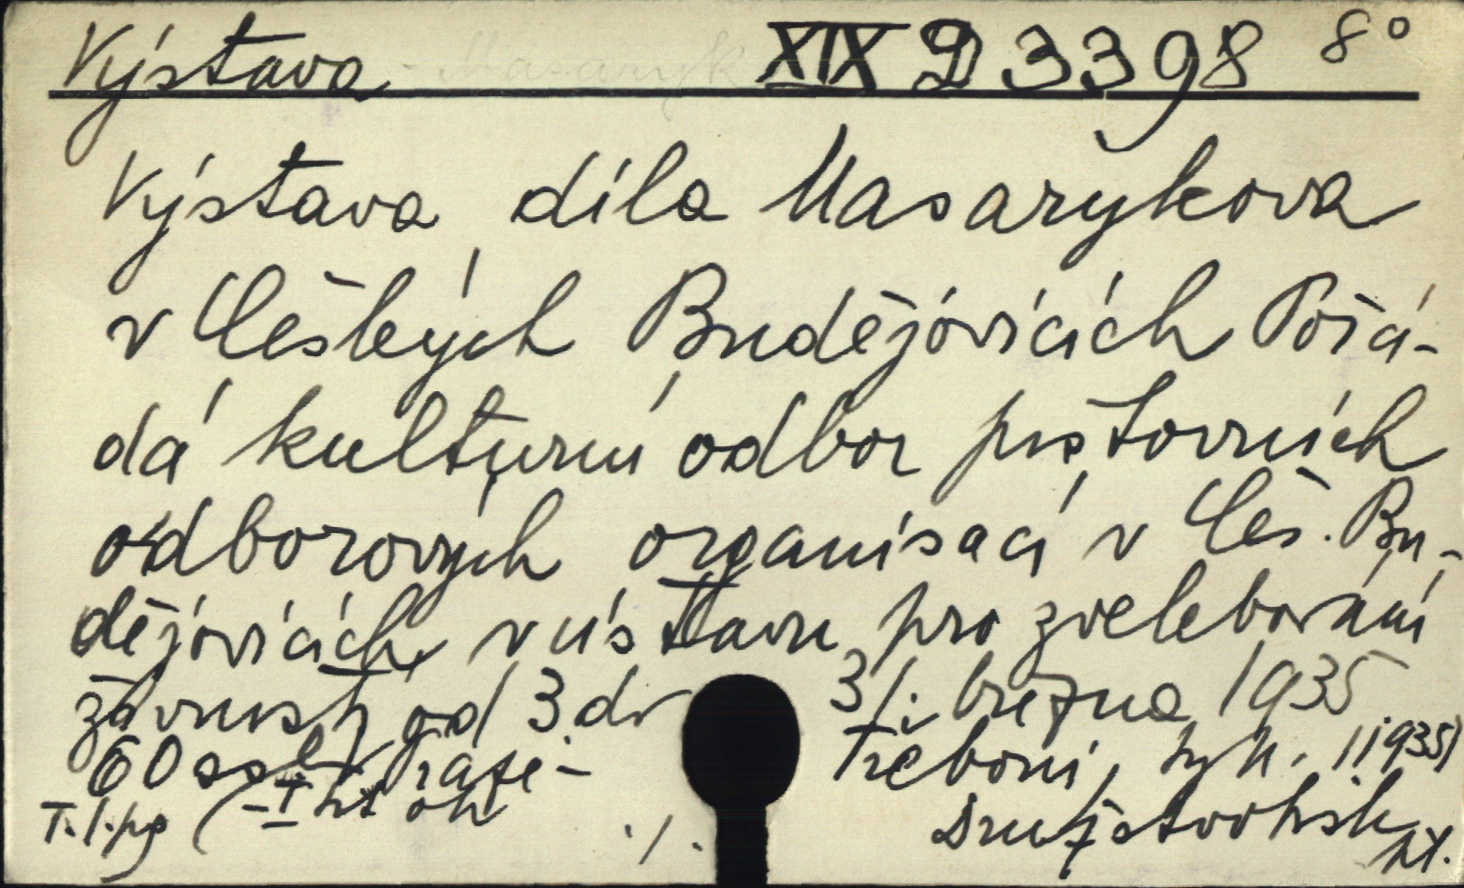 Výstava - Masaryk XIX D 3398 8°
Výstava díla Masarykova
v Českých Budějovicích Pořá-
dá kulturní odbor pošt ovních
odborových organisací v Čes. Bu-
dějovicích v ústavu pro zvelebování
živností od 3. do 31. března 1935
60 Třeboni, 1935)
T. 1. (-
./.